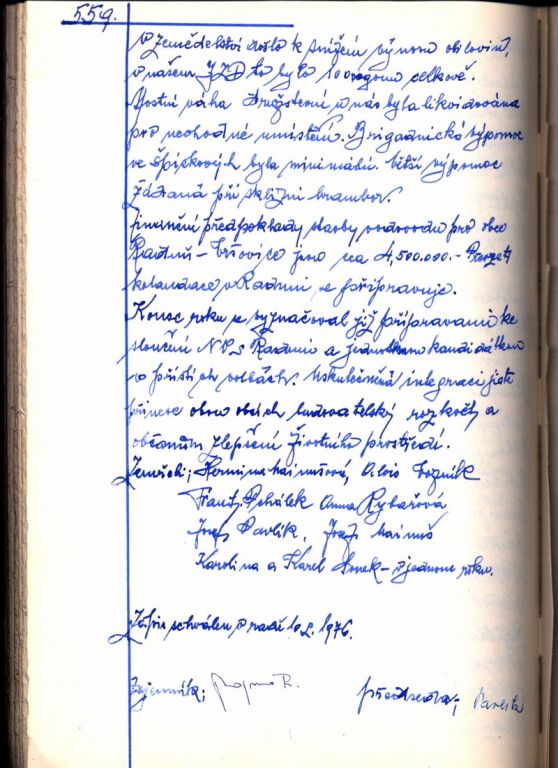 559.
V zemědelství došlo k snížení výnosu obilovin,
v našem JZD to bylo 100 vagonu celkově.
Mostní váha Družstevní u nás byla likvidována
pro nevhodné umístění. Brigadnická výpomoc
ve špičkových byla minimální. Větší výpomoc
žádaná při sklizni brambor.
Finanční předpoklady stavby vodovodu pro obce
Raduň - Vršovice jsou cca 4,500.000.- Projekt
kolaudace v Raduni se připravuje.
Konec roku se vyznačoval již přípravami ke
sloučení NV s Raduní a jednotnou kandidátkou
v příštích volbách. Uskutečněná integrací jistě
přinese obou obcích budovatelský rozkvět a
občanům zlepšení životního prostředí.
Zemřeli; Hermina Maimušová, Alois Vozník
Frant. Pchálek Anna Rybařová
Josef Pavlík, Josef Maimuš
Karolina a Karel - v jednom roku.
Zápis schválen v radě 10.2.1976.
Tajemník;
předseda; Pavlík